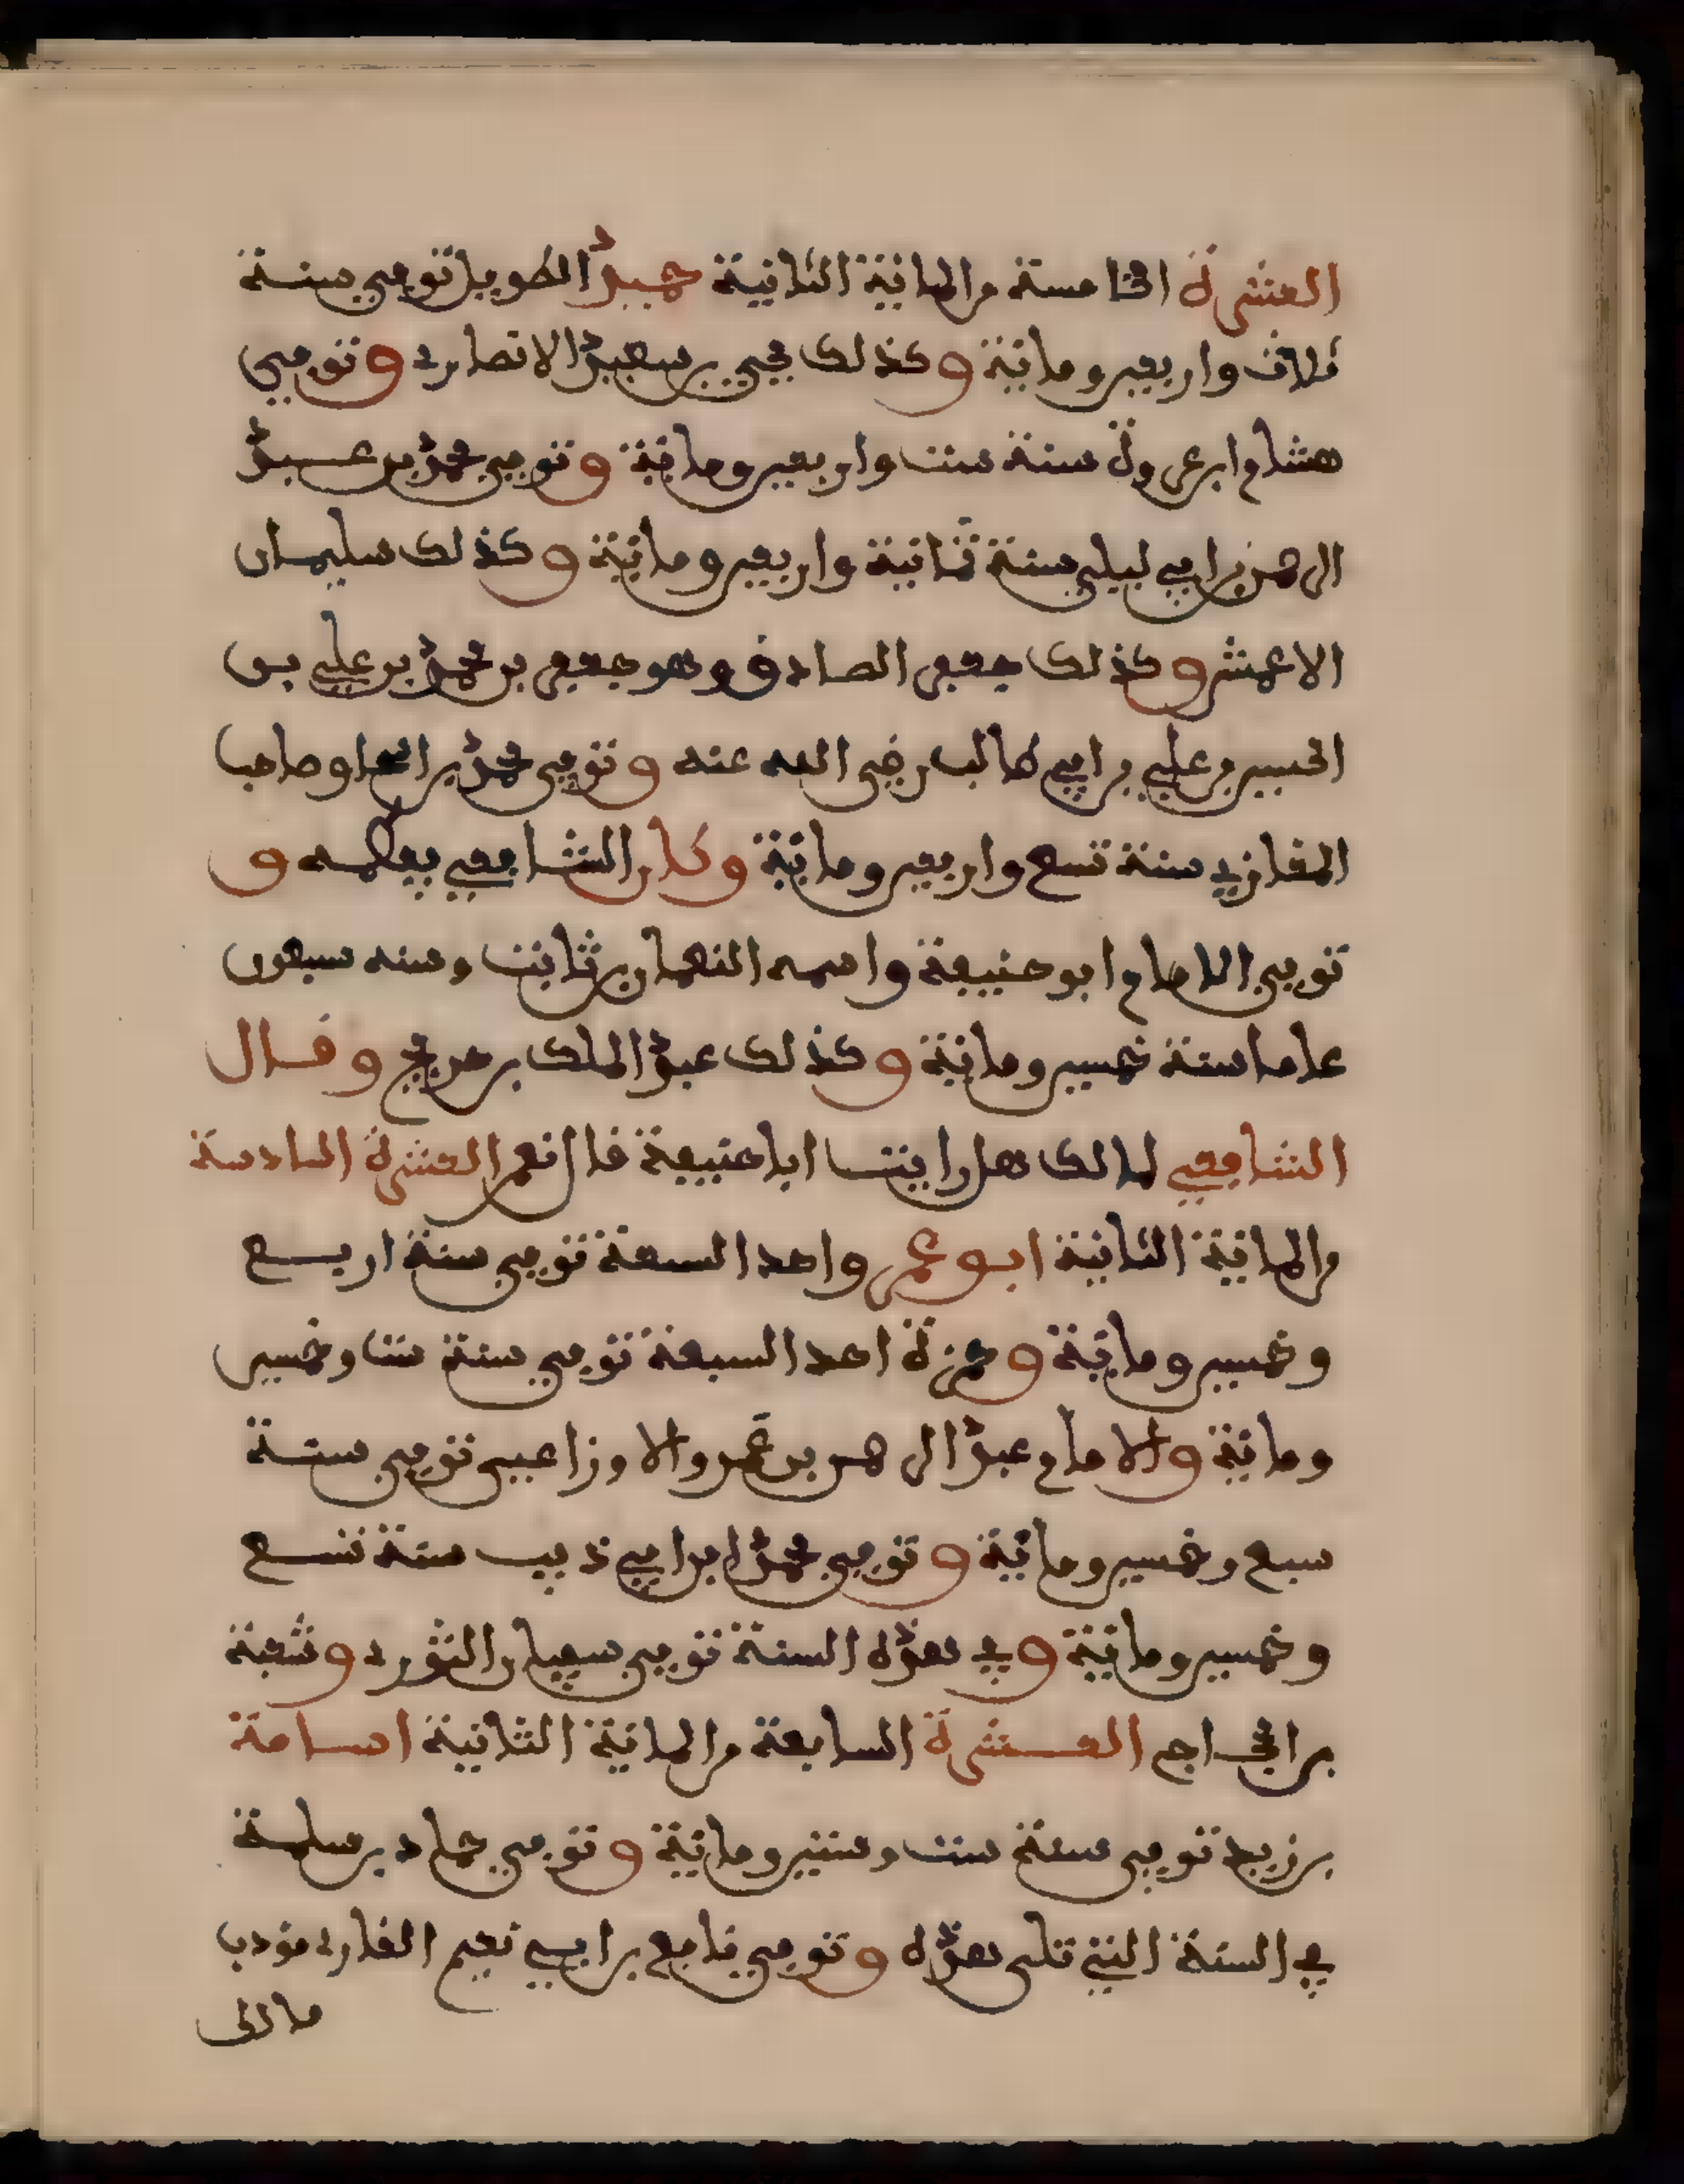 العشرة الخامسة من المائة الثانية حميد الطويل توفي سنة
ثلاث واربعين ومائة وكذلك يحيى بن سعيد الانصاري وتوفي
هشام ابن عروة سنة ست واربعين ومائة وتوفي محمد بن عبد
الرحمن بن ابي ليلى سنة ثمانية واربعين ومائة وكذلك سليمان
الاعمش وكذلك جعفر الصادق وهو جعفر بن محمد بن علي بن
الحسين بن علي بن ابي طالب رضي الله عنه وتوفي محمد بن اسحاق صاحب
المغازي سنة تسع واربعين ومائة وكان الشافعي يعظمه و
توفي الامام ابو حنيفة واسمه النعمان بن ثابت وسنه سبعون
عاما سنة خمسين ومائة وكذلك عبد الملك بن جريج وقال
الشافعي لمالك هل رايت ابا حنيفة قال نعم العشرة السادسة
من المائة الثانية ابو عمر واحد السبعة توفي سنة اربع
وخمسين ومائة وحمزة احد السبعة توفي سنة ست وخمسين
ومائة والامام عبد الرحمن بن عمرو الاوزاعي توفي سنة
سبع وخمسين ومائة وتوفي محمد ابن ابي ذيب سنة تسع
وخمسين ومائة وفي هذه السنة توفي سفيان الثوري وشعبة
بن الحجاج العشرة السابعة من المائة الثانية اسامة
بن زيد توفي سنة ست وستين ومائة وتوفي حماد بن سلمة
في السنة التي تلى هذه وتوفي نافع بن ابي نعيم القاري مؤدب
مالك